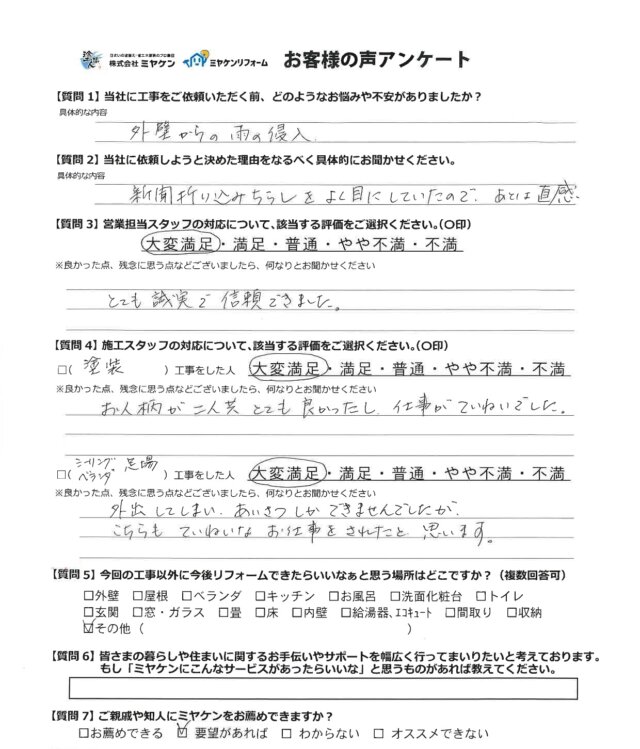 塗替え工房 住まいの塗替え・省エネ塗装のプロ集団
株式会社 ミヤケン ミヤケンリフォーム お客様の声アンケート
【質問 1】当社に工事をご依頼いただく前、どのようなお悩みや不安がありましたか？
具体的な内容
外壁からの雨の侵入
【質問 2】当社に依頼しようと決めた理由をなるべく具体的にお聞かせください。
具体的な内容
新聞折り込みちらしをよく目にしていたので、あとは直感。
【質問 3】営業担当スタッフの対応について、該当する評価をご選択ください。（〇印）
大変満足・満足・普通・やや不満・不満
※良かった点、残念に思う点などございましたら、何なりとお聞かせください
とても誠実で信頼できました。
【質問 4】施工スタッフの対応について、該当する評価をご選択ください。（〇印）
□( 塗装 )工事をした人 大変満足・満足・普通・やや不満・不満
※良かった点、残念に思う点などございましたら、何なりとお聞かせください
お人柄が二人共とても良かったし、仕事がていねいでした。
シーリング 足場
□( ベランダ )工事をした人 大変満足・満足・普通・やや不満・不満
※良かった点、残念に思う点などございましたら、何なりとお聞かせください
外出してしまい、あいさつしかできませんでしたが、
こちらもていねいなお仕事をされたと思います。
【質問 5】今回の工事以外に今後リフォームできたらいいなぁと思う場所はどこですか？（複数回答可）
□外壁 □屋根 □ベランダ □キッチン □お風呂 □洗面化粧台 □トイレ
□玄関 □窓・ガラス □畳 □床 □内壁 □給湯器、エコキュート □間取り □収納
☑その他（ ）
【質問 6】皆さまの暮らしや住まいに関するお手伝いやサポートを幅広く行ってまいりたいと考えております。
もし「ミヤケンにこんなサービスがあったらいいな」と思うものがあれば教えてください。
【質問 7】ご親戚や知人にミヤケンをお薦めできますか？
□お薦めできる ☑要望があれば □わからない □オススメできない